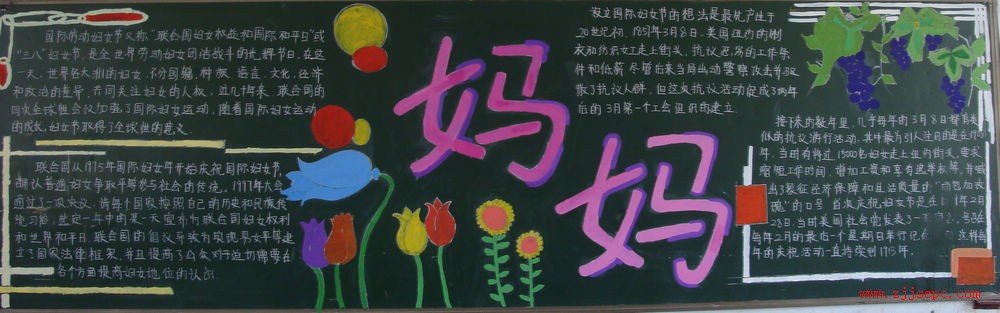 国际劳动妇女节又称"联合国妇女权益和国际和平日"或
"三八"妇女节,是全世界劳动妇女团结战斗的光辉节日。在这
一天,世界各大洲的妇女,不分国籍、种族、语言、文化、经济
和政治的差异,共同关注妇女的人权。近几十年来,联合国的
四次全球性会议加强了国际妇女运动,随着国际妇女运动
的成长,妇女节取得了全球性的意义
联合国从1975年国际妇女年开始庆祝国际妇女节,
确认普通妇女争取平等参与社会的传统。1997年大会
通过了一项决议,请每个国家按照自己的历史和民族传
统习俗,选定一年中的某一天宣布为联合国妇女权利
和世界和平日。联合国的倡议导致为实现男女平等建
立了国家法律框架,并且提高了公众对于迫切需要在
各个方面提高妇女地位的认识
妈
妈
设立国际妇女节的想法是最先产生于
20世纪初,1857年3月8日,美国纽约的制
衣和纺织女工走上街头,抗议恶劣的工作条
件和低薪。尽管后来当局出动警察攻击并驱
散了抗议人群,但这次抗议活动促成了两年
后的3月第一个工会组织的建立
接下来的数年里,几乎每年的3月8日都有类
似的抗议游行活动,其中最为引人注目的是在19
年,当时有将近15000名妇女走上纽约街头,要求
缩短工作时间,增加工资和享有选举权等,并喊
出了象征经济保障和生活质量的"面包加玫
瑰"的口号。首次庆祝妇女节是在19 9年2月
28日,当时美国社会党发表了一 号召在
每年2月的最后一个星期日举行纪念 这样每
年的庆祝活动一直持续到1913年。
www.zjjsepc.com